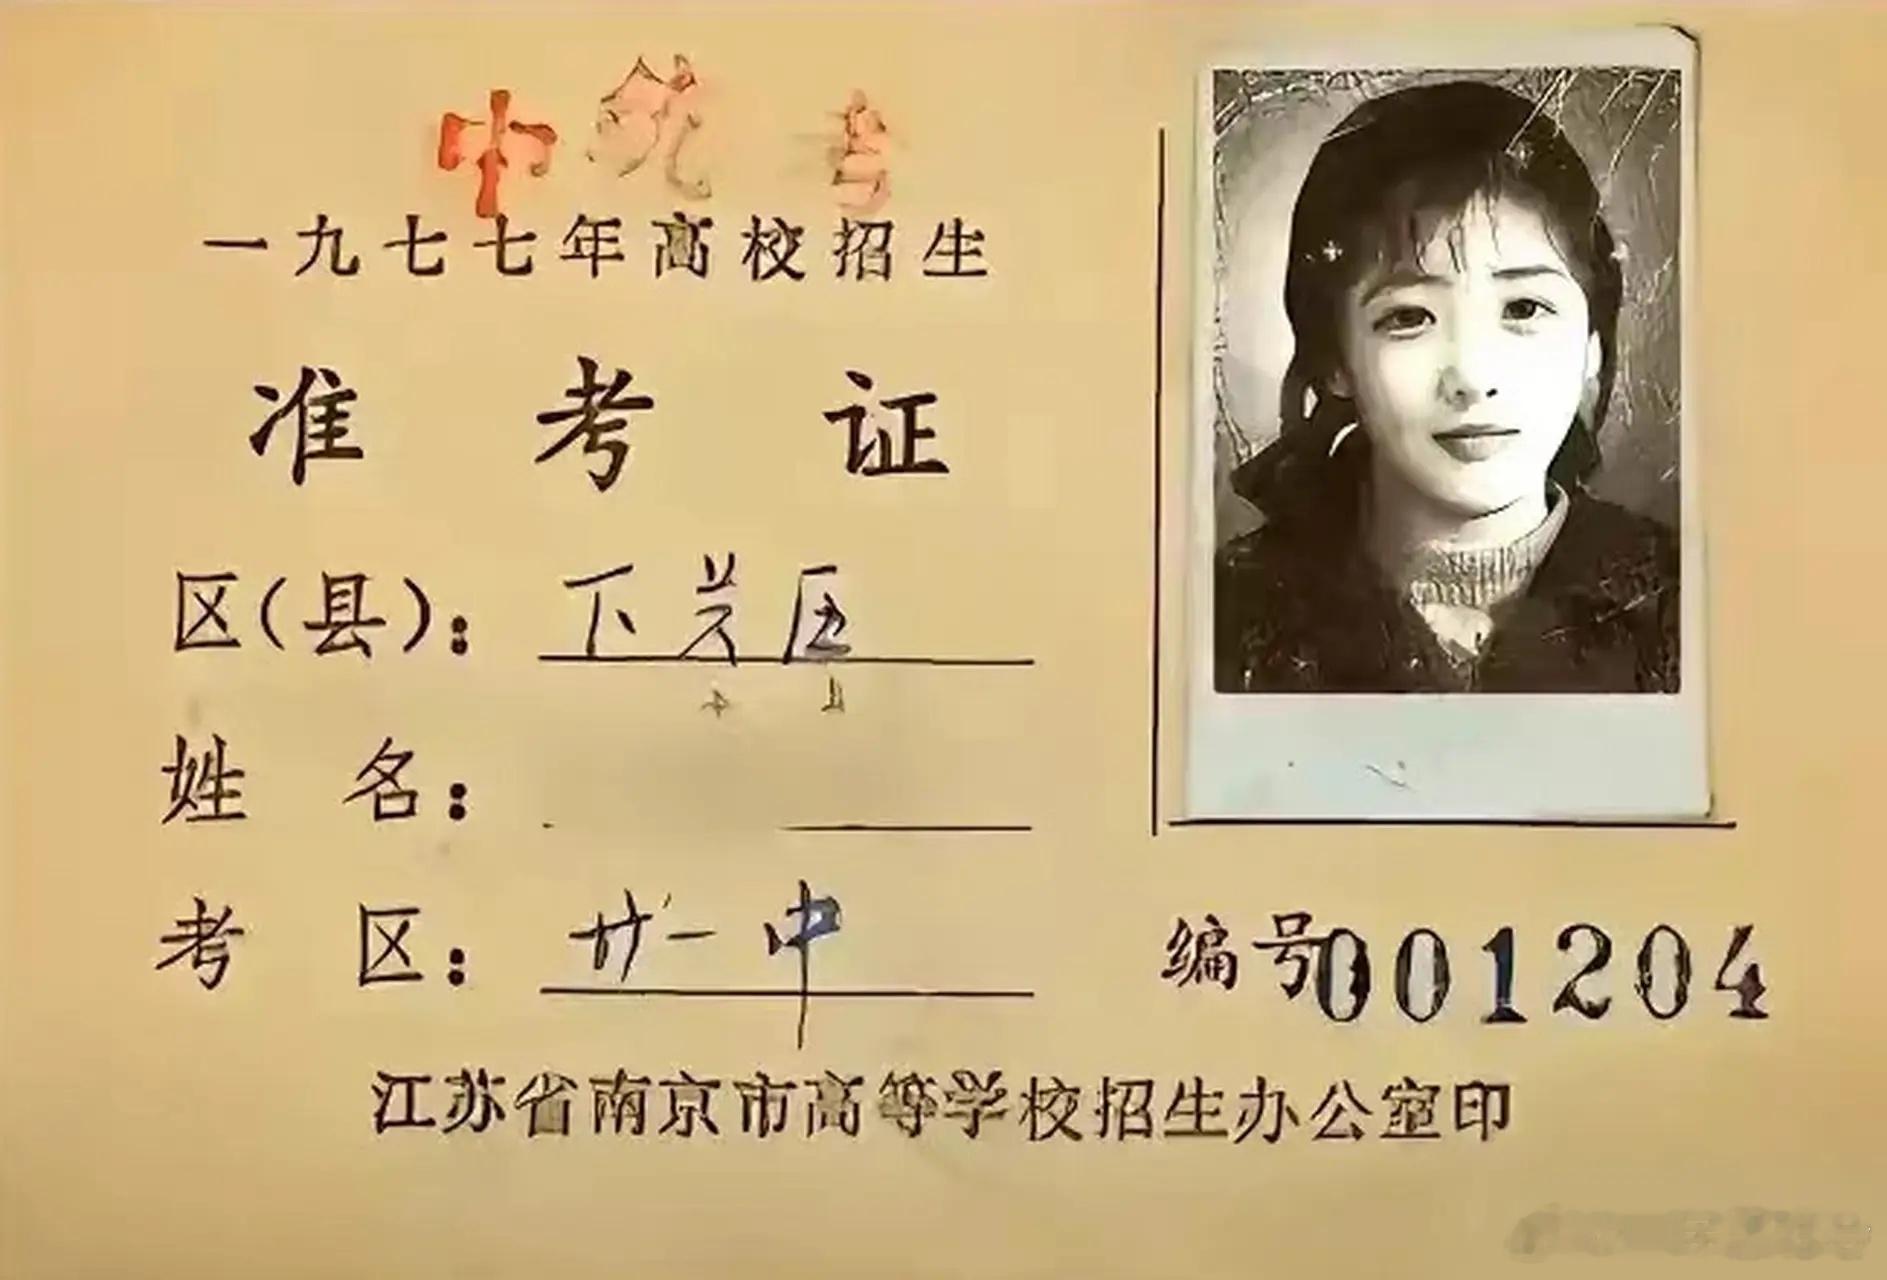 中统考
一九七七年高校招生
准考证
区(县)：下关区
姓名：
考区：廿一中
编号001204
江苏省南京市高等学校招生办公室印